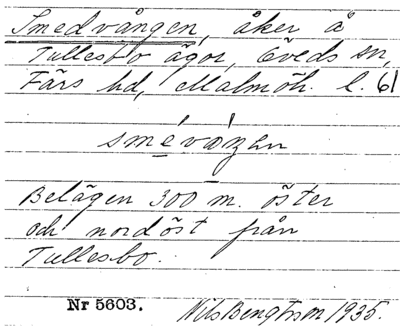 Smedvången, åker å
Tullesbo ägor, Öveds sn,
Färs hd, Malmöh. l. 61
Belägen 300 m. öster
och nordöst från
Tullesbo.
Nr 5603.
Nils Bengtsson 1935.